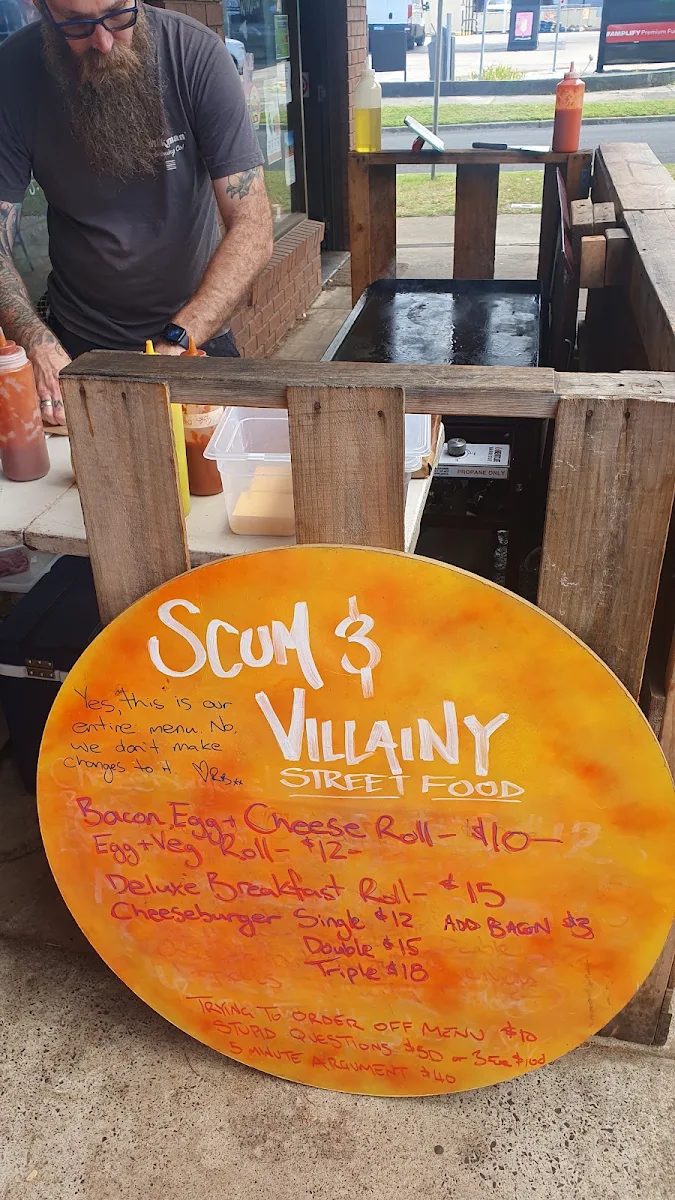 AMPLIFY Premium
PROPANE ONLY
SCUM &
VILLAINY
STREET FOOD
Yes, "this" is our
entire menu. No,
we don't make
changes to it.
Bacon, Egg + Cheese Roll - $10 -
Egg + Veg Roll - $12 -
Deluxe Breakfast Roll - $15
Cheeseburger Single $12 ADD BACON $3
Double $15
Triple $18
TRYING TO ORDER OFF MENU $10
STUPID QUESTIONS $50 or 3 $100
5 MINUTE ARGUMENT $40